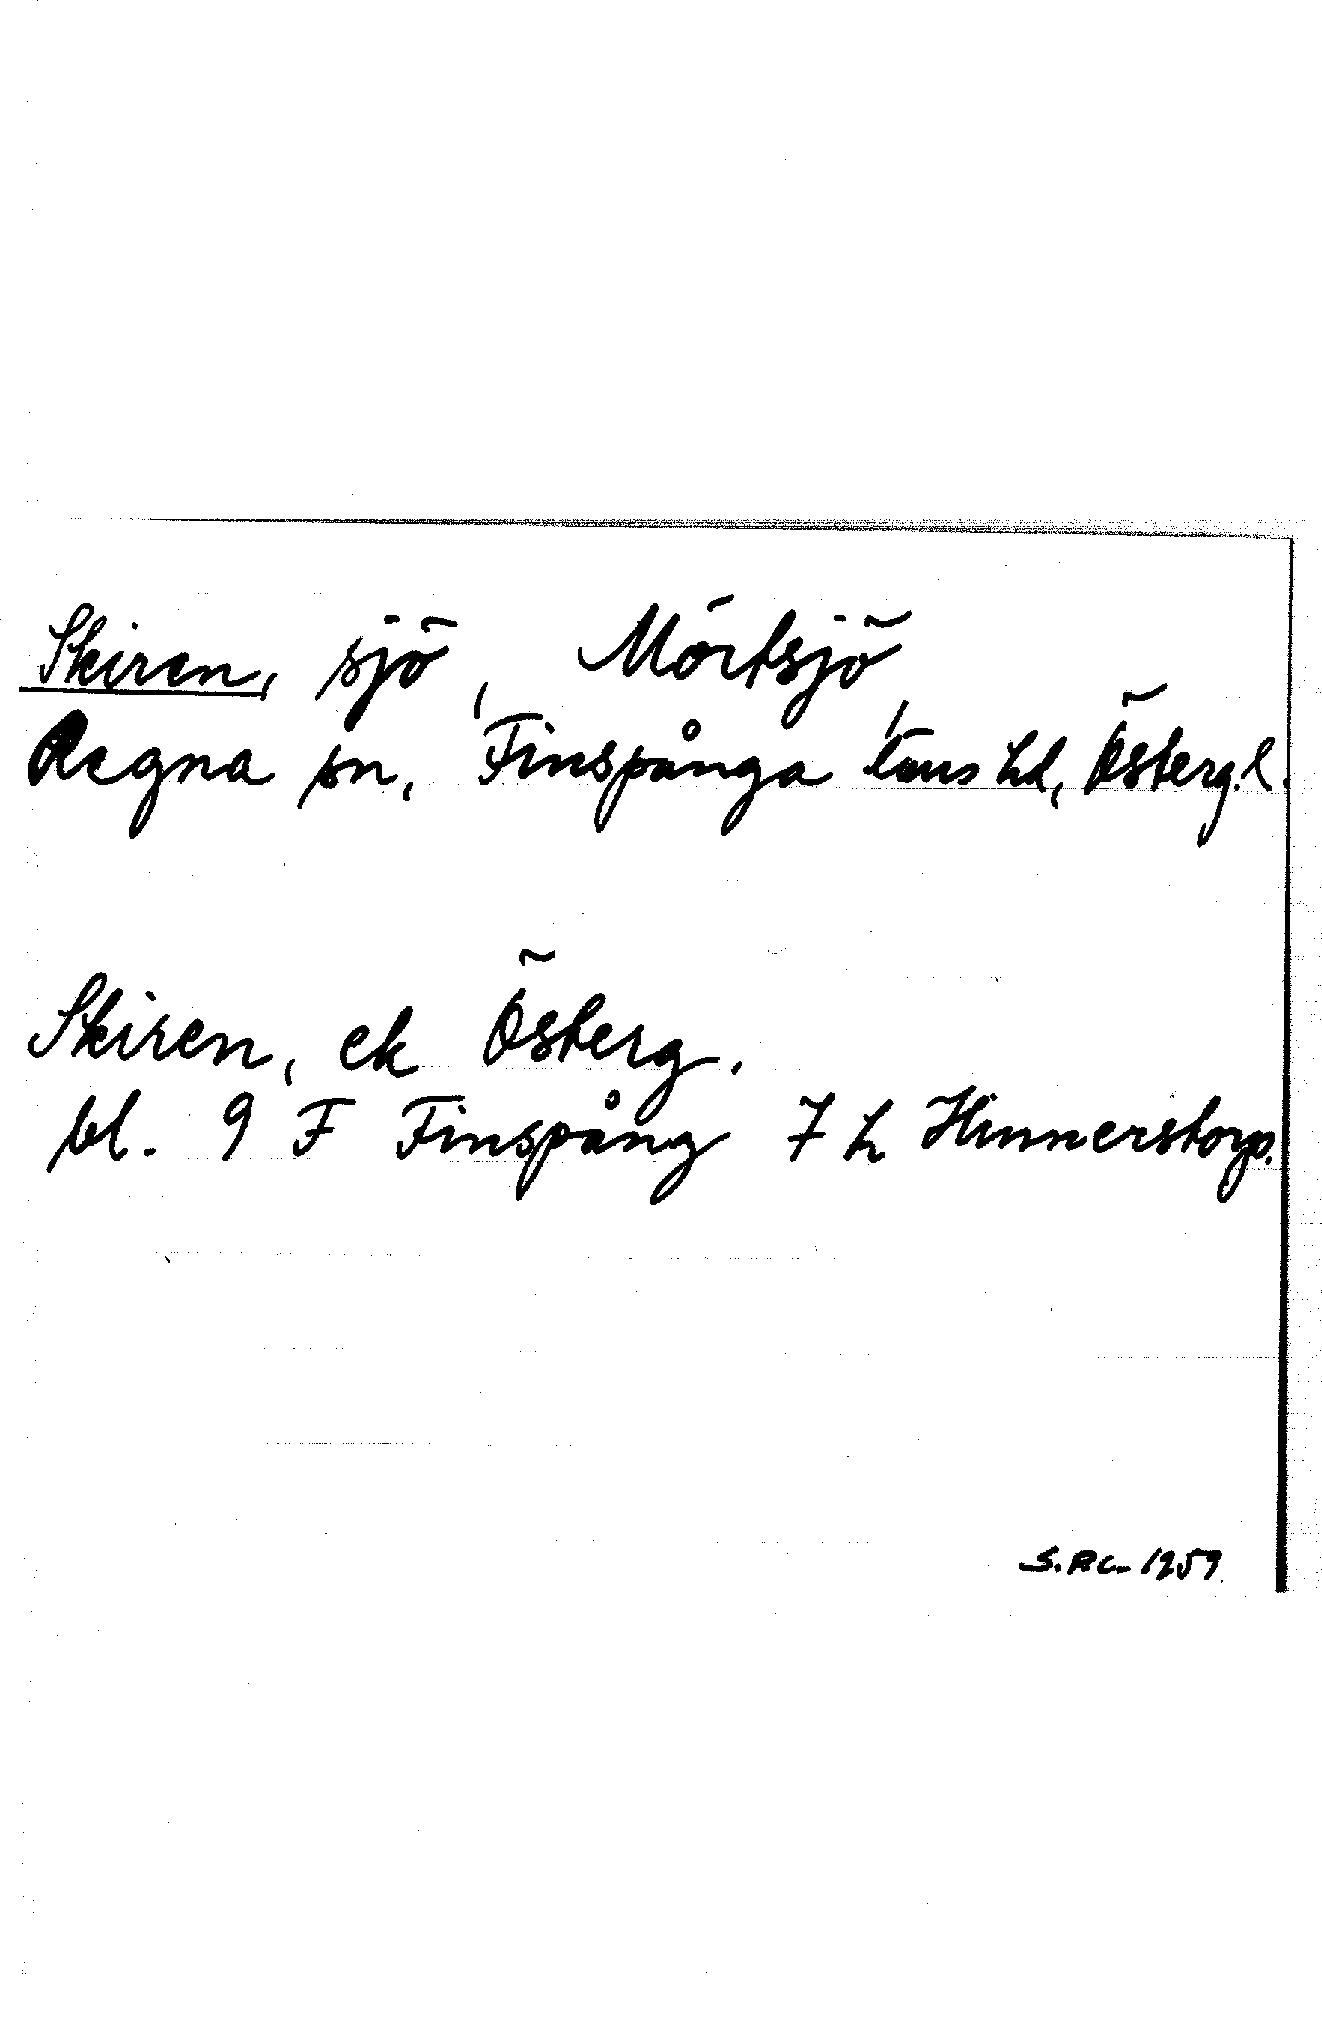 Skiren, sjö, Mörtsjö,
Regna sn, Finspånga läns hd, Österg.l.
Skiren, ek Österg.
bl. 9 F Finspång 7 h Hinnerstorp.
1959